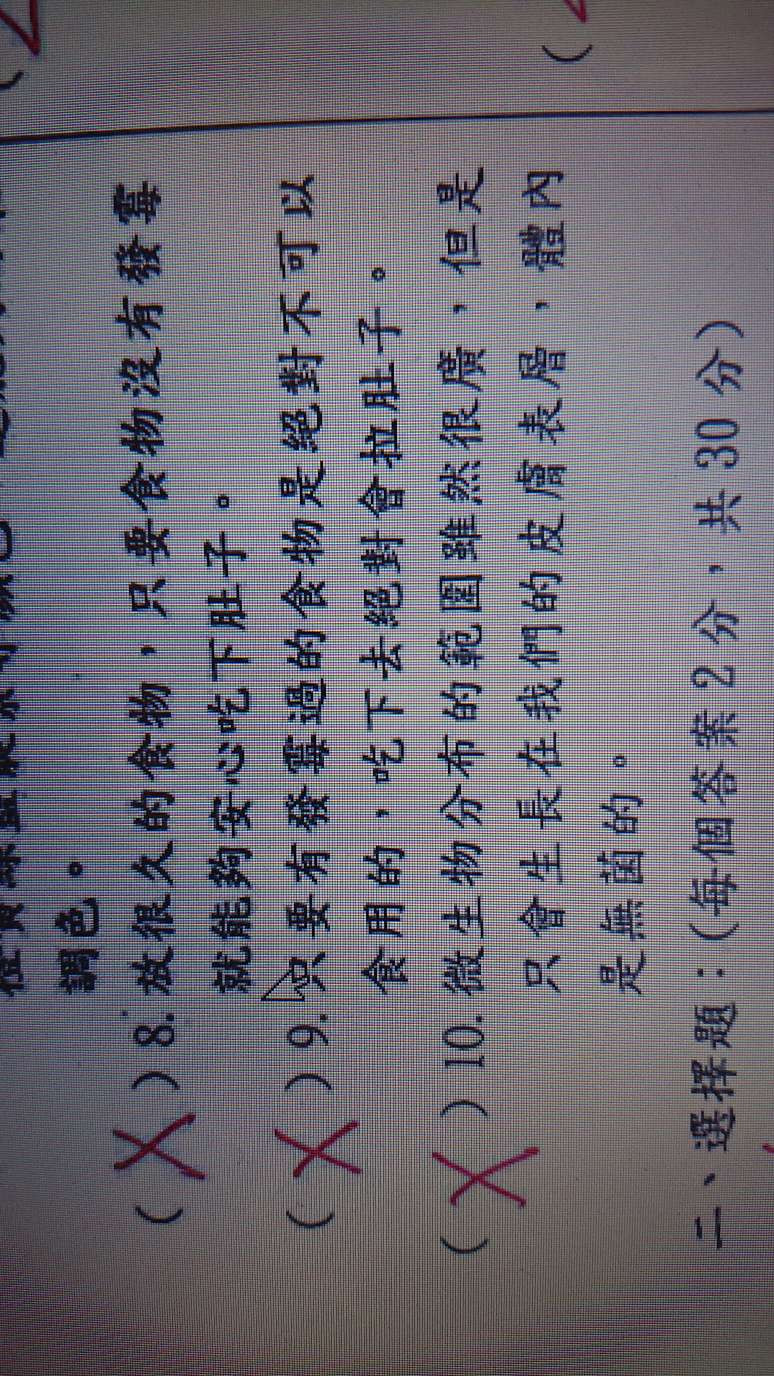 調色。
(X)8.放很久的食物,只要食物沒有發霉
就能夠安心吃下肚子。
(X)9.只要有發霉過的食物是絕對不可以
食用的,吃下去絕對會拉肚子。
(X)10.微生物分布的範圍雖然很廣,但是
只會生長在我們的皮膚表層,體內
是無菌的。
二、選擇題:(每個答案2分,共30分)